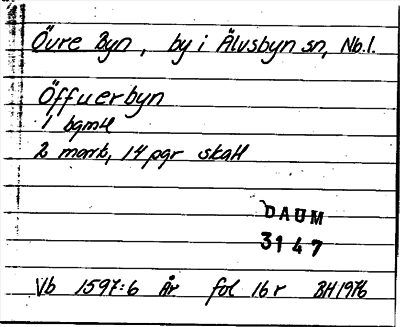 Övre Byn, by i Älvsbyn sn, Nb.l.
Öffuerbyn
1 bgmH
2 mark, 14 pgr skatt
DAUM
3147
Vb 1597:6 År fol 16r BH1976